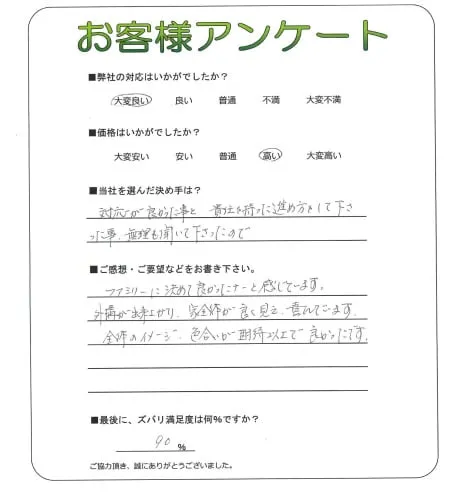 お客様アンケート
■弊社の対応はいかがでしたか？
大変良い 良い 普通 不満 大変不満
■価格はいかがでしたか？
大変安い 安い 普通 高い 大変高い
■当社を選んだ決め手は？
対応が良かった事と 責任を持った進め方をして下さ
った事、無理も聞いて下さったので
■ご感想・ご要望などをお書き下さい。
ファミリーに決めて良かったナーと感じています。
外構が出来上がり、家全体が良く見え、喜んでいます。
全体のイメージ、色合いが期待以上で良かったです。
■最後に、ズバリ満足度は何%ですか？
90 %
ご協力頂き、誠にありがとうございました。